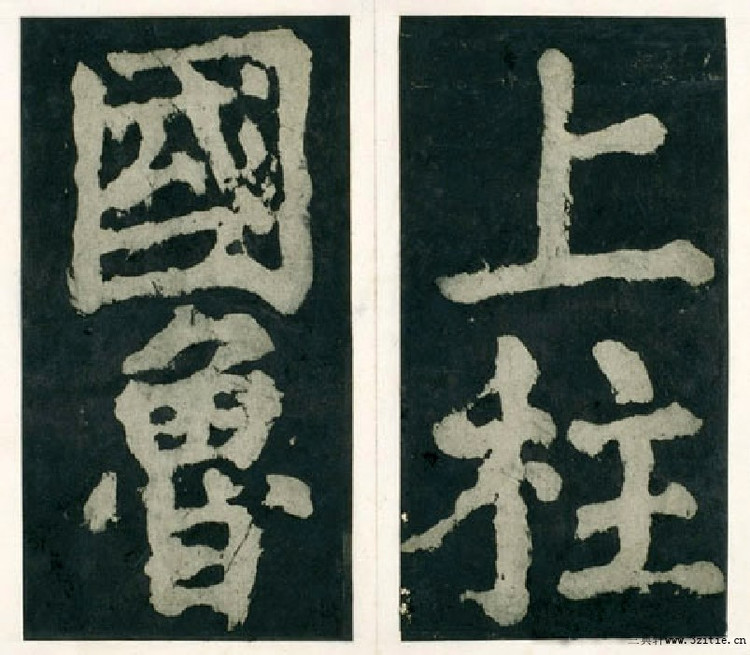 上柱
國魯
www.3zitie.cn